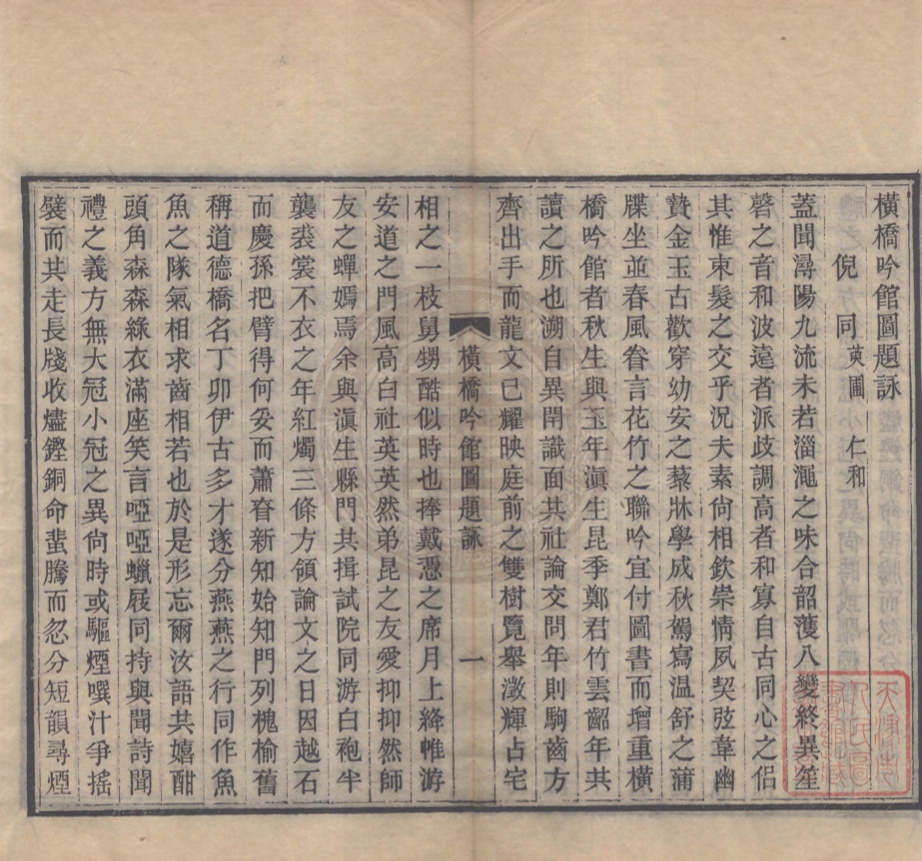 橫橋吟館圖題詠
倪同 萸圃 仁和
蓋聞潯陽九流未若淄澠之味合韶濩八變終異笙
磬之音和波遠者派歧調高者和寡自古同心之侶
其惟束髮之交乎況夫素尙相欽崇情夙契弦韋幽
贄金玉古歡穿幼安之藜牀學成秋駕寫溫舒之蒲
牒坐並春風眷言花竹之聯吟宜付圖書而增重橫
橋吟館者秋生與玉年滇生昆季鄭君竹雲齠年共
讀之所也溯自異閈識面共社論交問年則駒齒方
齊出手而龍文已耀映庭前之雙樹覽舉澂輝占宅
橫橋吟館圖題詠 一
相之一枝舅甥酷似時也捧戴憑之席月上絳帷游
安道之門風高白社英英然弟昆之友愛抑抑然師
友之蟬嫣焉余與滇生縣門共揖試院同游白袍半
襲裘裳不衣之年紅燭三條方領論文之日因越石
而慶孫把臂得何妥而蕭眘新知始知門列槐榆舊
稱道德橋名丁卯伊古多才遂分燕燕之行同作魚
魚之隊氣相求齒相若也於是形忘爾汝語共嬉酣
頭角森森綠衣滿座笑言啞啞蠟屐同持與聞詩聞
禮之義方無大冠小冠之異尙時或驅煙噀汁爭搖
襞而其走長牋收燼鏗銅命蜚騰而忽分短韻尋煙